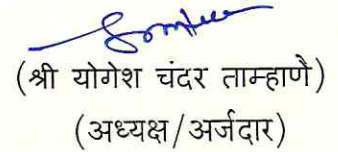 (श्री योगेश चंदर ताम्हाणे)
(अध्यक्ष/अर्जदार)